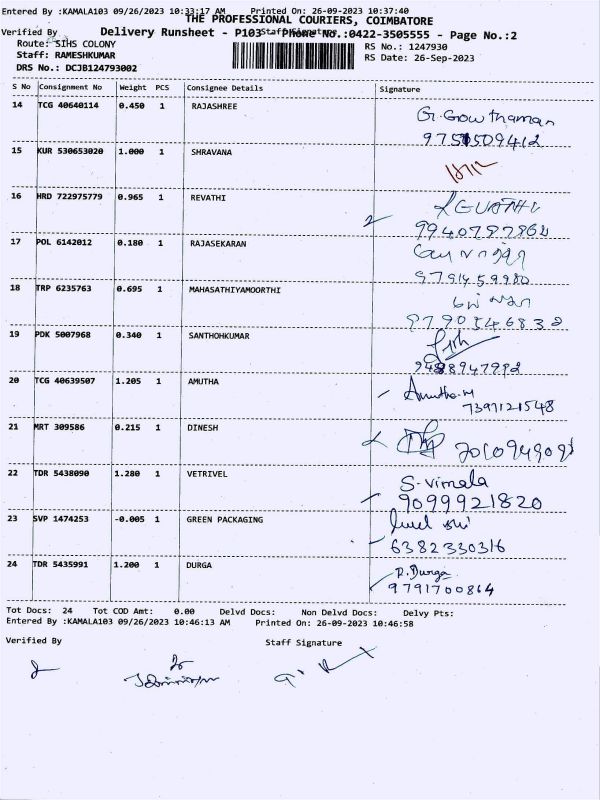 Entered By :KAMALA103 09/26/2023 10:33:17 AM Printed On: 26-09-2023 10:37:40
THE PROFESSIONAL COURIERS, COIMBATORE
Verified By Delivery Runsheet - P103 - Phone No.:0422-3505555 - Page No.:2
Staff Signature
Route: SIHS COLONY
Staff: RAMESHKUMAR
DRS No.: DCJB124793002
RS No.: 1247930
RS Date: 26-Sep-2023
S No Consignment No Weight PCS Consignee Details Signature
14 TCG 40640114 0.450 1 RAJASHREE G. Gowthaman
9751509412
15 KUR 530653020 1.000 1 SHRAVANA
16 HRD 722975779 0.965 1 REVATHI
9940797860
17 POL 6142012 0.180 1 RAJASEKARAN
9791459980
18 TRP 6235763 0.695 1 MAHASATHIYAMOORTHI
9790546832
19 PDK 5007968 0.340 1 SANTHOHKUMAR
20 TCG 40639507 1.205 1 AMUTHA Amutha.M
7397121548
21 MRT 309586 0.215 1 DINESH
22 TDR 5438090 1.280 1 VETRIVEL S. Vimala
9099921820
23 SVP 1474253 -0.005 1 GREEN PACKAGING
6382330316
24 TDR 5435991 1.200 1 DURGA R. Durga
9791700864
Tot Docs: 24 Tot COD Amt: 0.00 Delvd Docs: Non Delvd Docs: Delvy Pts:
Entered By :KAMALA103 09/26/2023 10:46:13 AM Printed On: 26-09-2023 10:46:58
Verified By Staff Signature